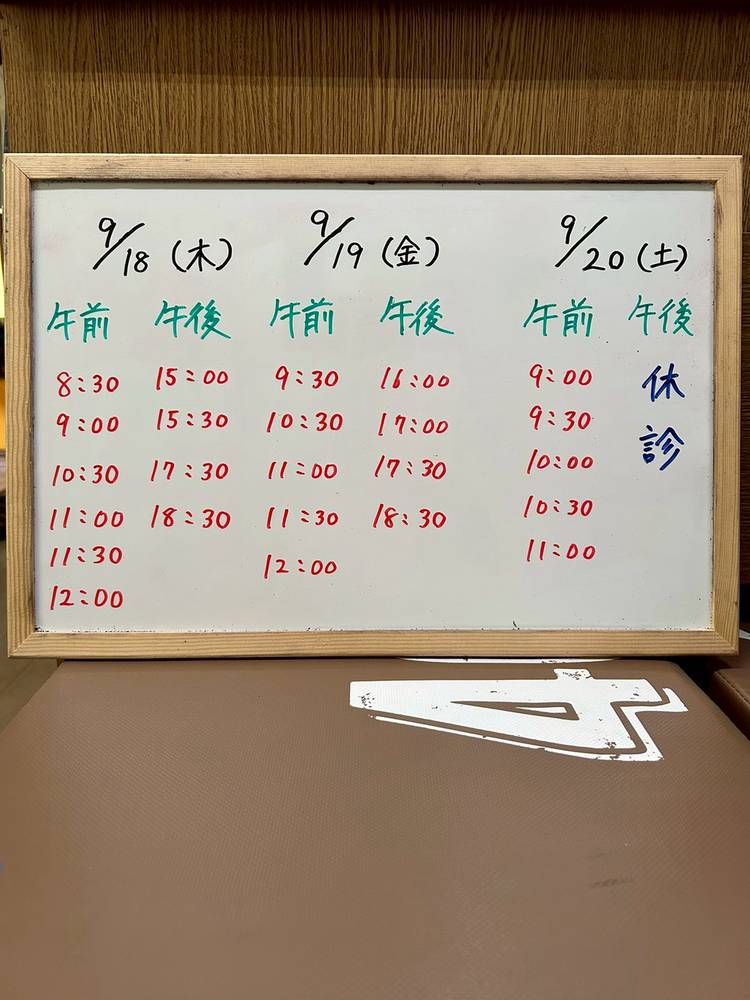 9/18（木） 9/19（金） 9/20（土）
午前 午後 午前 午後 午前 午後
8:30 15:00 9:30 16:00 9:00 休
9:00 15:30 10:30 17:00 9:30 診
10:30 17:30 11:00 17:30 10:00
11:00 18:30 11:30 18:30 10:30
11:30 12:00 11:00
12:00
4